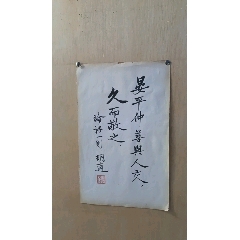 晏平仲善與人交，
久而敬之．
胡適